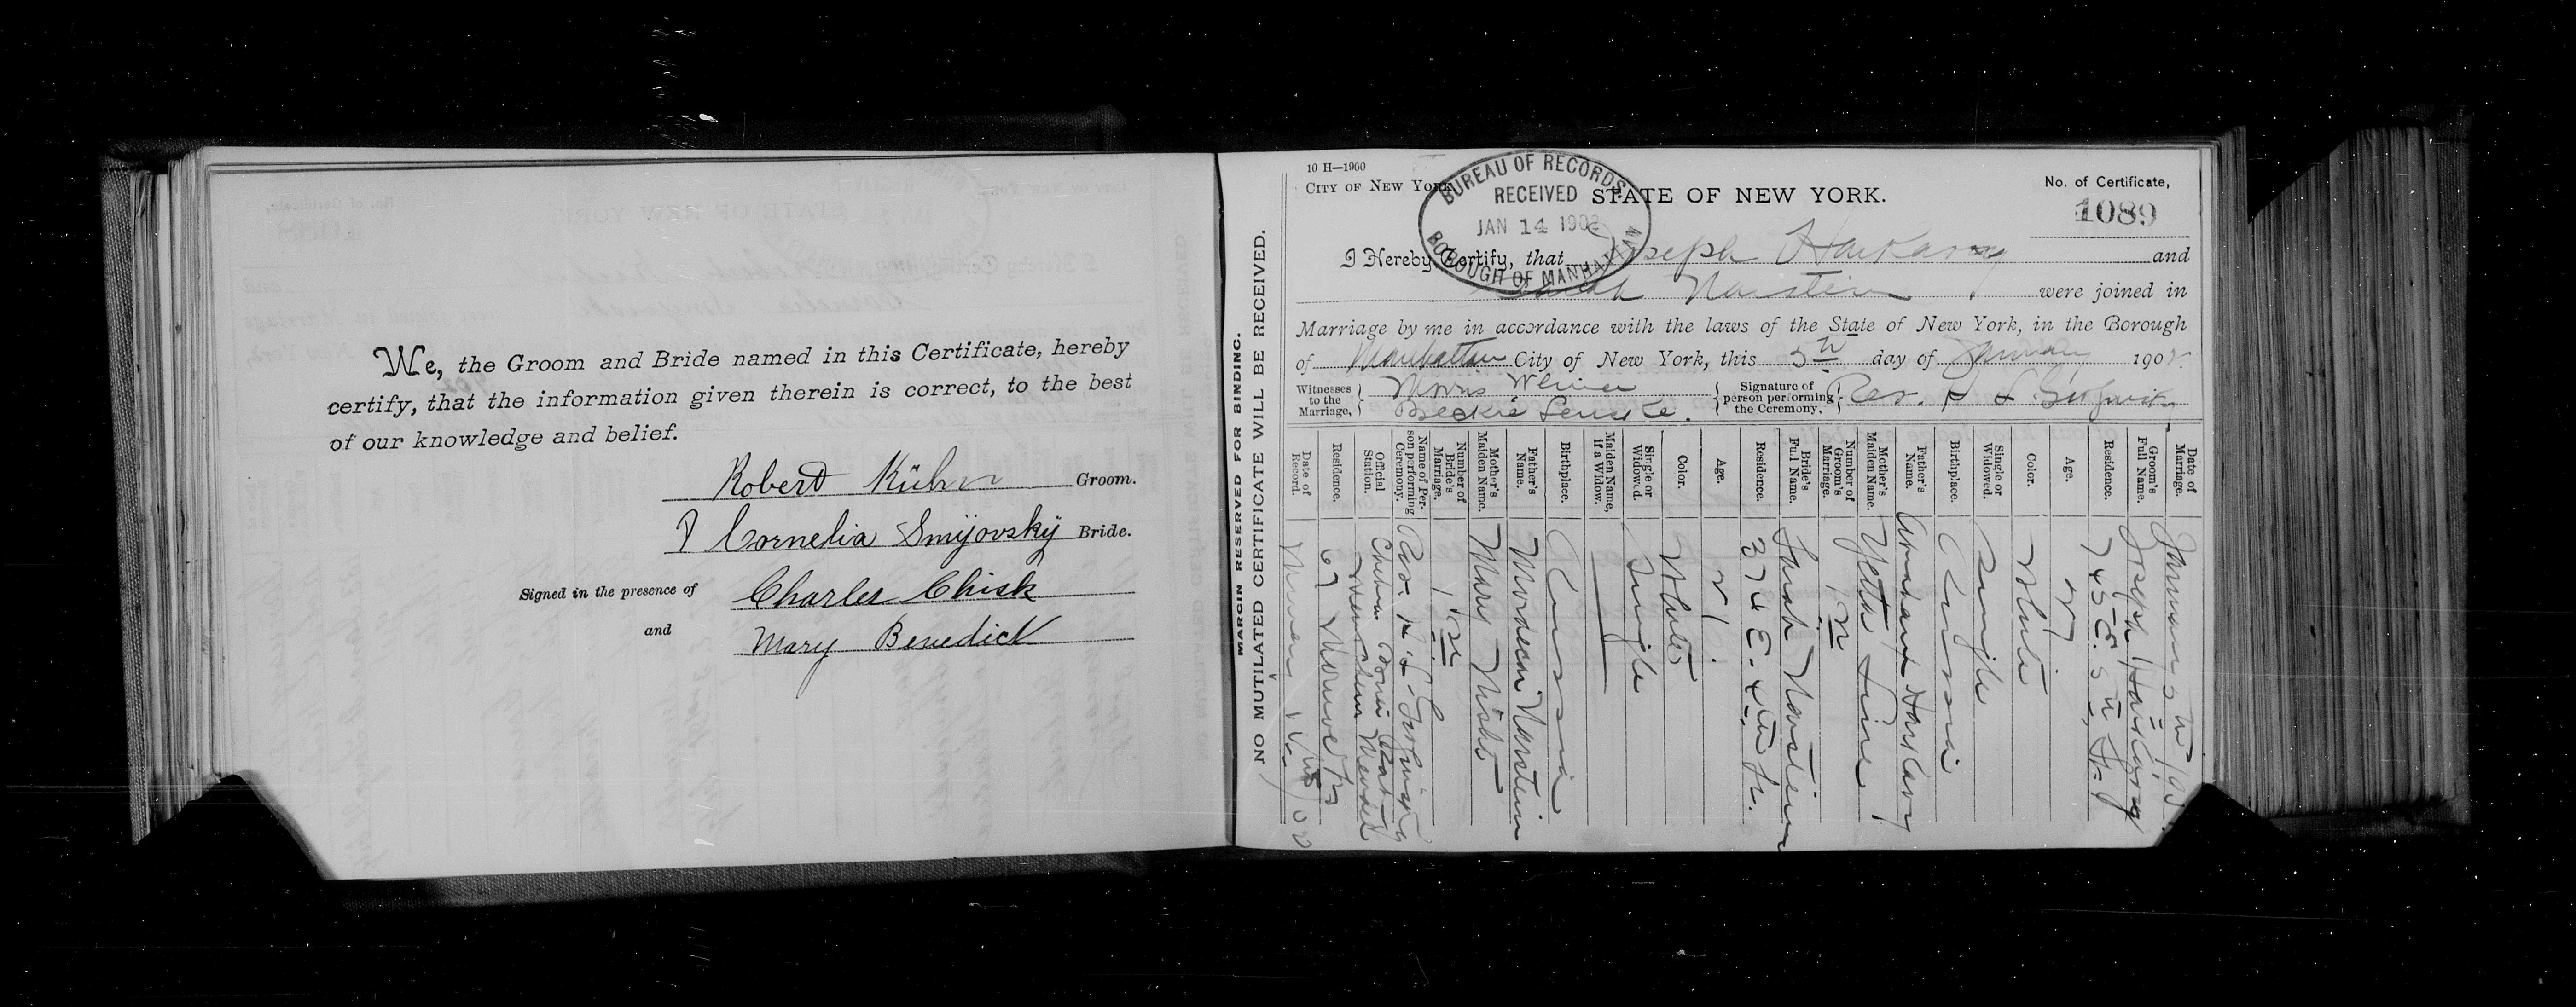 We, the Groom and Bride named in this Certificate, hereby
certify, that the information given therein is correct, to the best
of our knowledge and belief.
Robert Kühn Groom.
Cornelia Smijovsky Bride.
Signed in the presence of Charles Chisk
and Mary Benedict
MARGIN RESERVED FOR BINDING.
NO MUTILATED CERTIFICATE WILL BE RECEIVED.
10 H—1900
CITY OF NEW YORK.
STATE OF NEW YORK.
No. of Certificate,
1089
BUREAU OF RECORDS
RECEIVED
JAN 14 1902
BOROUGH OF MANHATTAN
I Hereby Certify, that Joseph Harkavy and
Sarah Narstein were joined in
Marriage by me in accordance with the laws of the State of New York, in the Borough
of Manhattan City of New York, this 5th day of January 1902.
Witnesses to the Marriage,
Morris
Beckie
Signature of person performing the Ceremony,
Rev.
Date of Marriage. January 5th
Groom's Full Name. Joseph Harkavy
Residence. 745 E. 5th St
Age.
Color. White
Single or Widowed. Single
Birthplace. Russia
Father's Name. Harkavy
Mother's Maiden Name. Yetta
Number of Groom's Marriage. 1
Bride's Full Name. Sarah Narstein
Residence. 374 E. 4th St.
Age. 21
Color. White
Single or Widowed. Single
Maiden Name, if a Widow.
Birthplace. Russia
Father's Name. Mordecai Narstein
Mother's Maiden Name. Mary
Number of Bride's Marriage. 1
Name of Person performing Ceremony. Rev.
Official Station.
Residence. 67 Monroe
Date of Record.